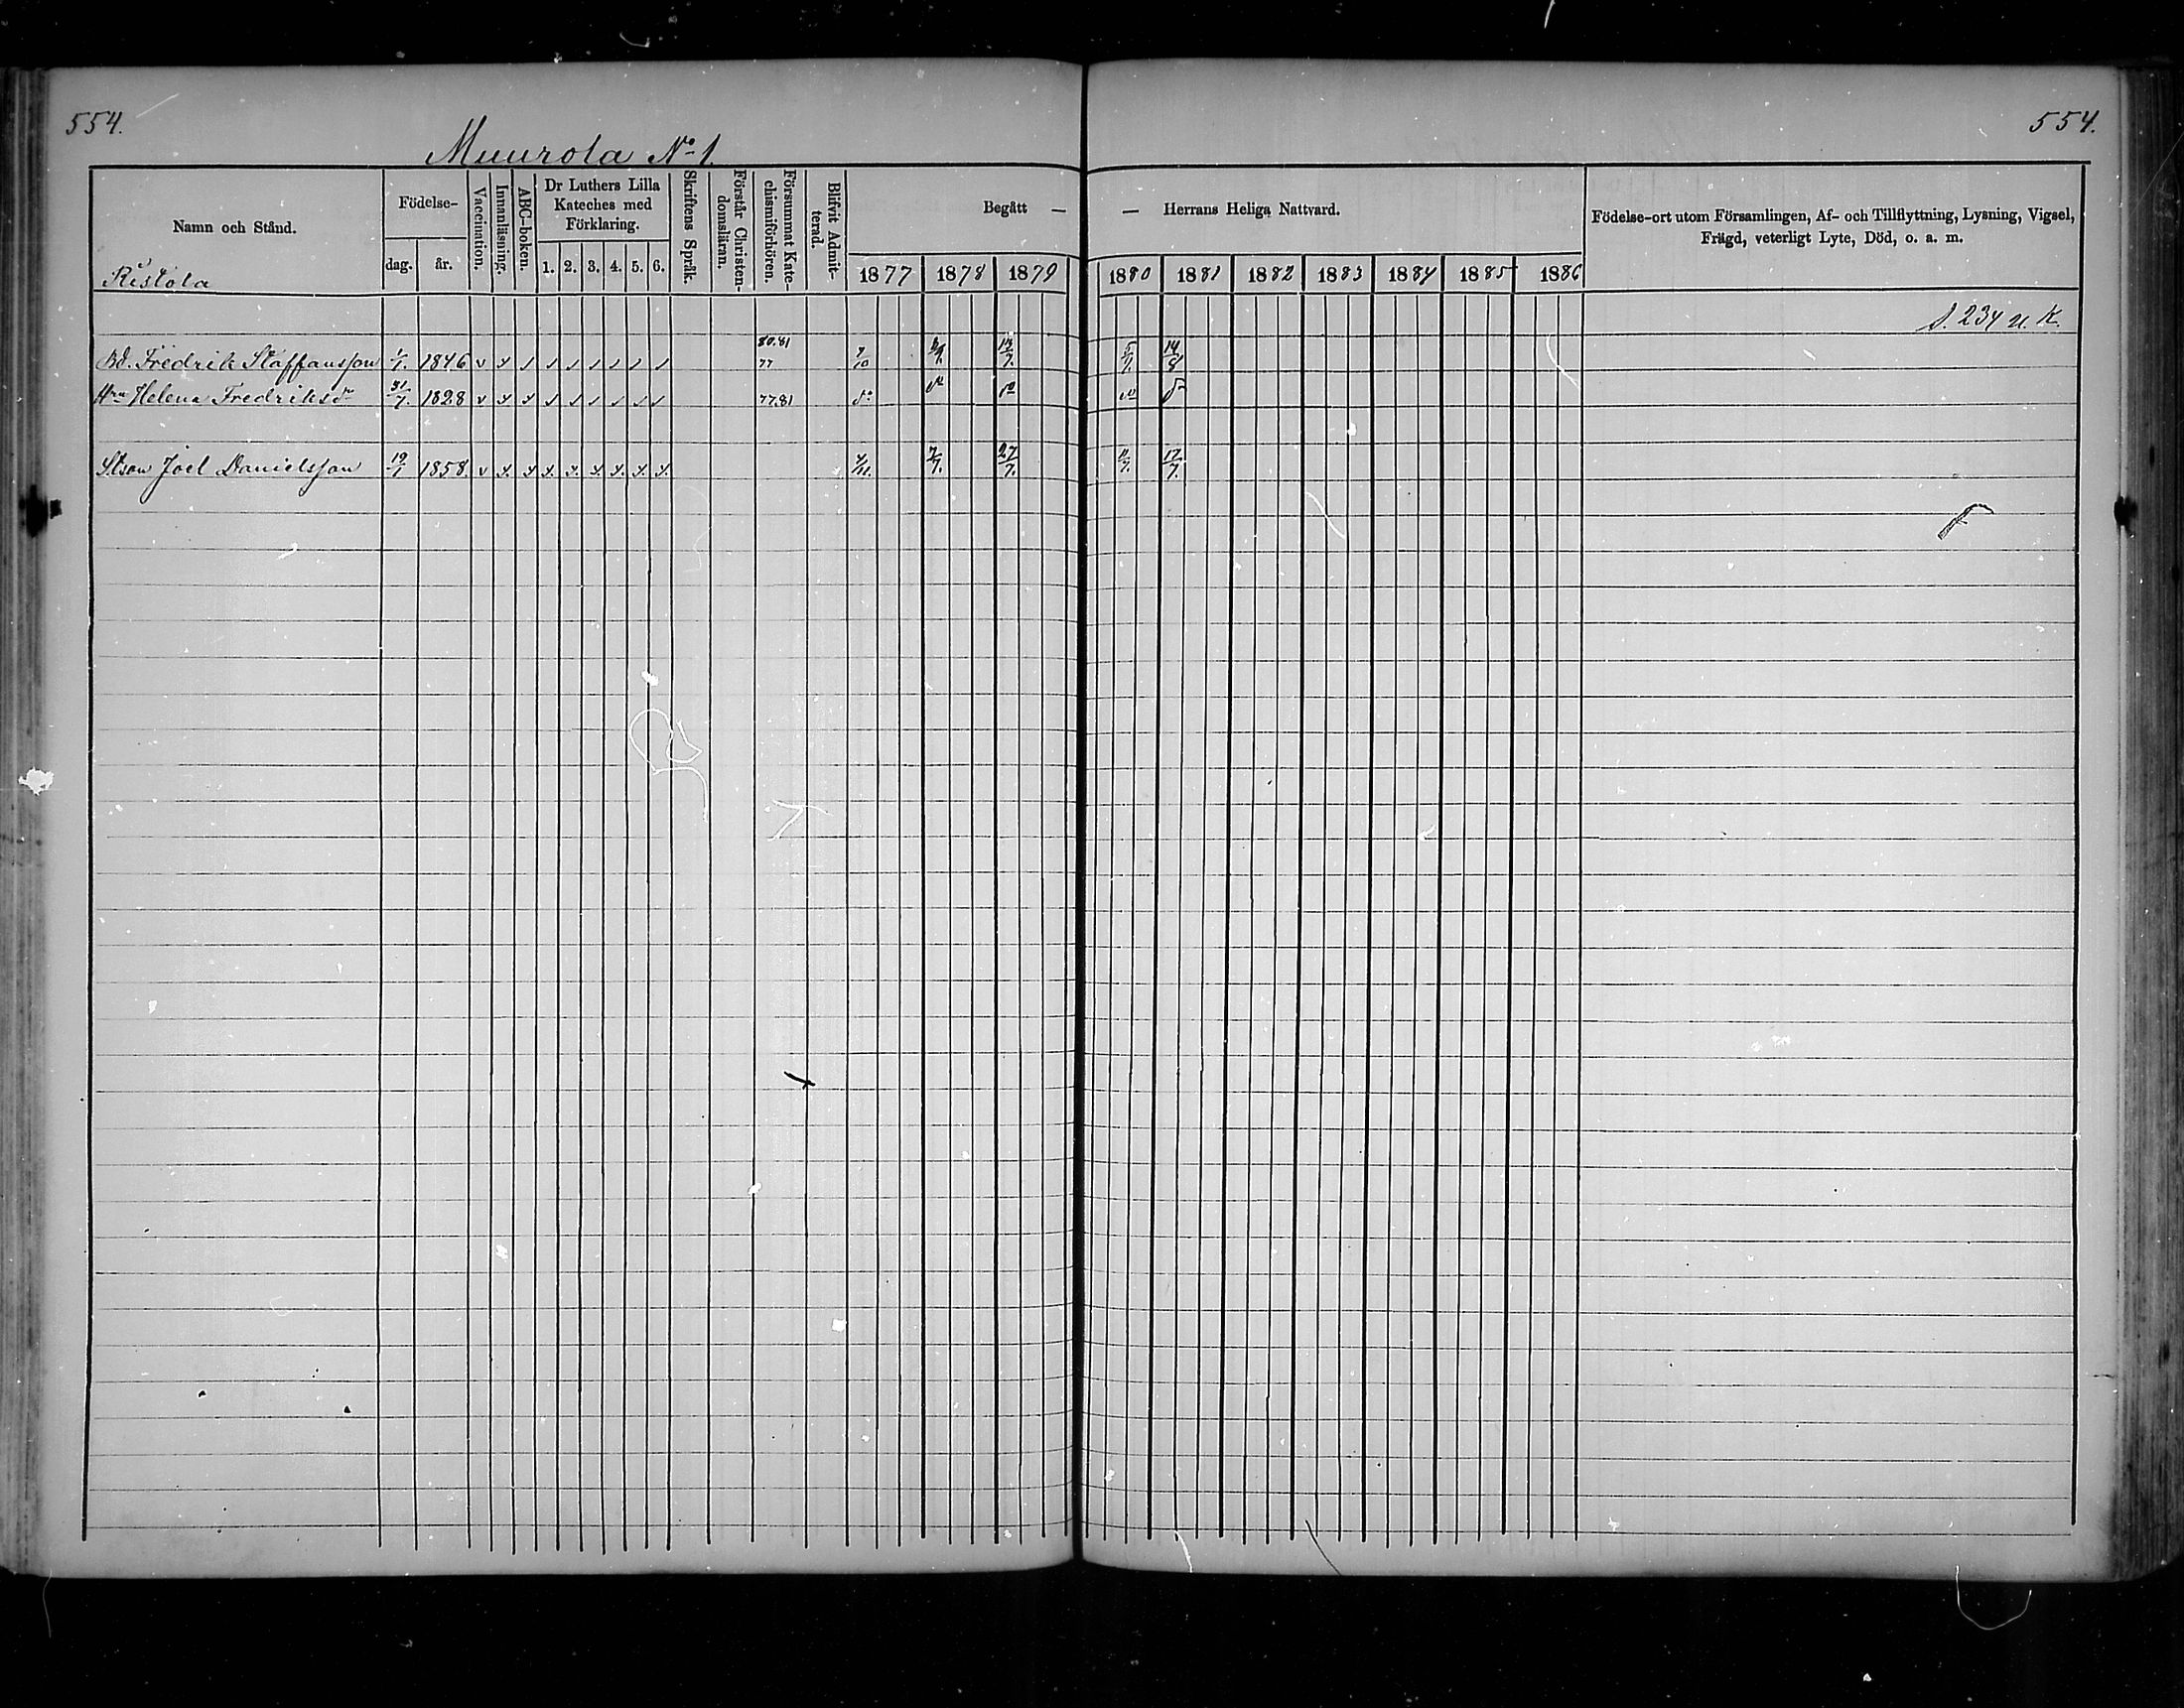 554.
554.
Muurola No 1.
Namn och Stånd.
Födelse-
dag.
år.
Vaccination.
Innanläsning.
ABC-boken.
Dr Luthers Lilla
Kateches med
Förklaring.
1. 2. 3. 4. 5. 6.
Skriftens Språk.
Förstår Christen-
domsläran.
Försummat Kate-
chismiförhören.
Blifvit Admit-
terad.
Begått —
— Herrans Heliga Nattvard.
1877 1878 1879 1880 1881 1882 1883 1884 1885 1886
Födelse-ort utom Församlingen, Af- och Tillflyttning, Lysning, Vigsel,
Frägd, veterligt Lyte, Död, o. a. m.
Ristola
S. 234 u. K.
80.81
Bd. Fredrik Staffansson 1/1. 1846 v 77 7/10 13/7. 5/7. 14/8
Hru Helena Fredriksdr 31/7. 1828 v 77.81 do do do do do
Stson Joel Danielsson 19/1 1858. v 4/11. 7/7. 27/7. 11/7. 17/7.